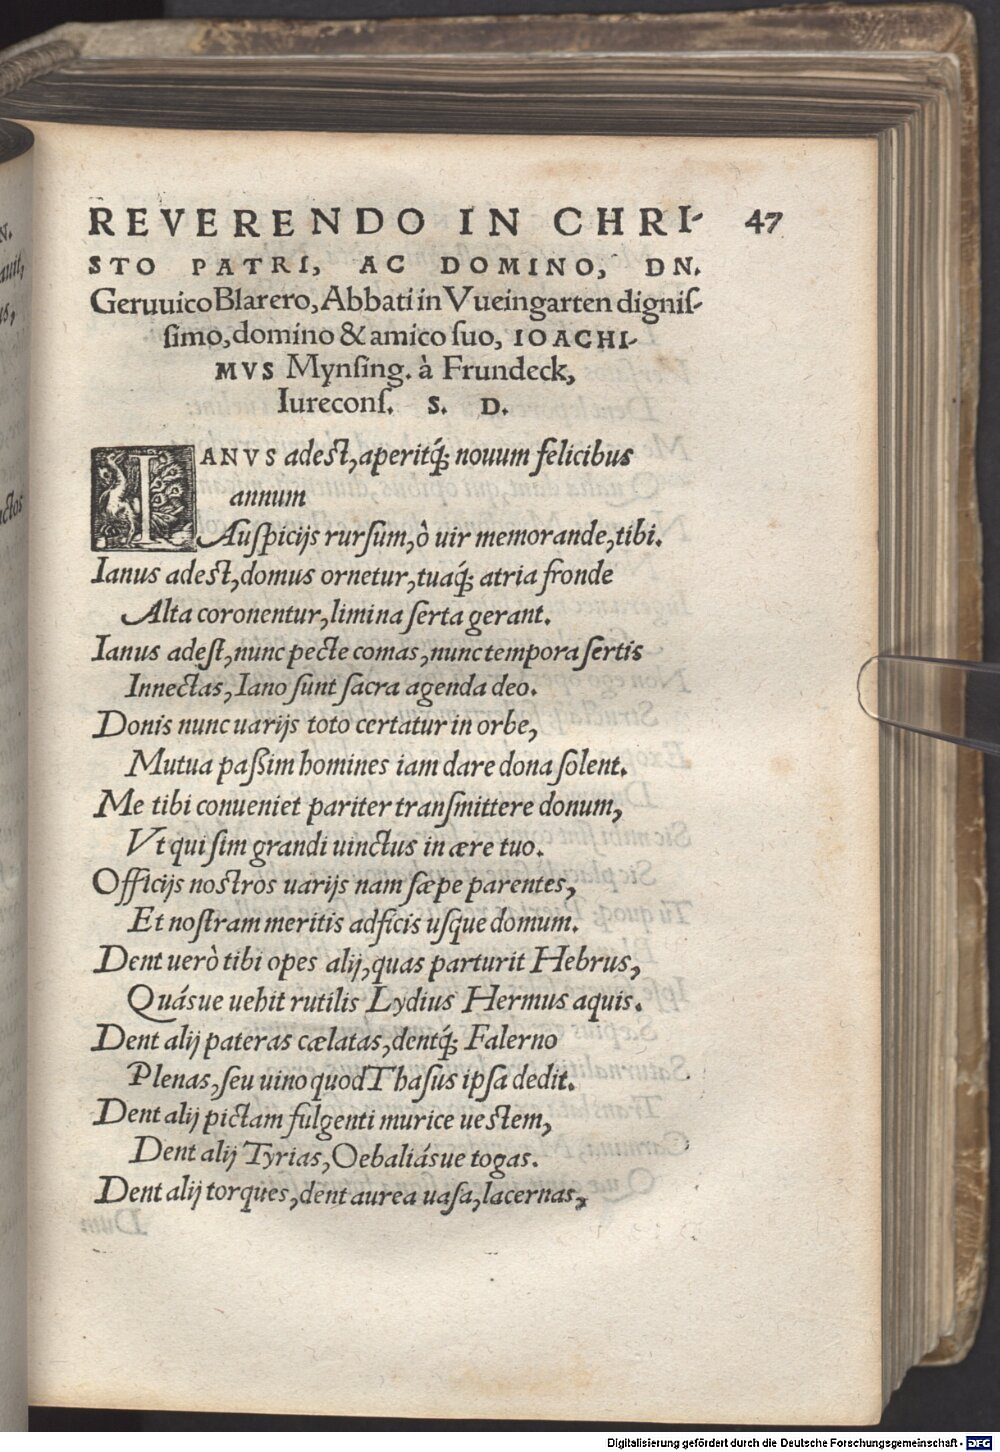 REVERENDO IN CHRI- 47
STO PATRI, AC DOMINO, DN.
Geruuico Blarero, Abbati in Vueingarten dignis-
simo, domino & amico suo, IOACHI-
MVS Mynsing. à Frundeck,
Iurecons. S. D.
IANVS adest, aperitq́; nouum felicibus
annum
Auspicijs rursum, ò uir memorande, tibi.
Ianus adest, domus ornetur, tuaq́; atria fronde
Alta coronentur, limina serta gerant.
Ianus adest, nunc pecte comas, nunc tempora sertis
Innectas, Iano sunt sacra agenda deo.
Donis nunc uarijs toto certatur in orbe,
Mutua paßim homines iam dare dona solent.
Me tibi conueniet pariter transmittere donum,
Vt qui sim grandi uinctus in ære tuo.
Officijs nostros uarijs nam sæpe parentes,
Et nostram meritis adficis usque domum.
Dent uerò tibi opes alij, quas parturit Hebrus,
Quásue uehit rutilis Lydius Hermus aquis.
Dent alij pateras cælatas, dentq́; Falerno
Plenas, seu uino quod Thasus ipsa dedit.
Dent alij pictam fulgenti murice uestem,
Dent alij Tyrias, Oebaliásue togas.
Dent alij torques, dent aurea uasa, lacernas,
Digitalisierung gefördert durch die Deutsche Forschungsgemeinschaft - DFG